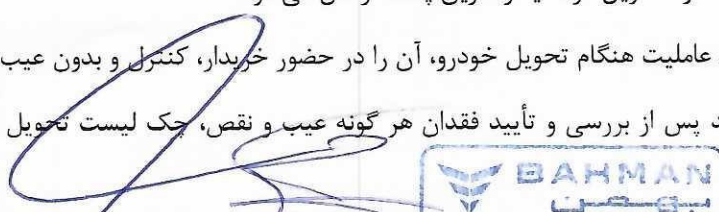 عاملیت هنگام تحویل خودرو، آن را در حضور خریدار، کنترل و بدون عیب
پس از بررسی و تأیید فقدان هر گونه عیب و نقص، چک لیست تحویل
BAHMAN
بهمن